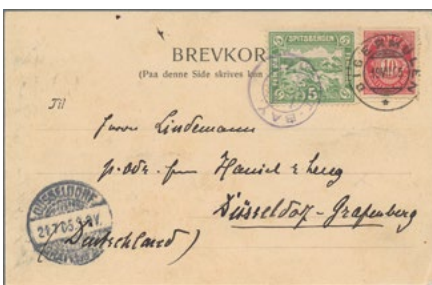 BREVKOR
(Paa denne Side skrives kun
SPITSBERGEN
15
10
DIGERMULEN
BAY
Til
Herrn Lindemann
p. adr. Haniel & Lueg
Düsseldorf-Grafenberg
(Deutschland)
DÜSSELDORF
21.7.05.